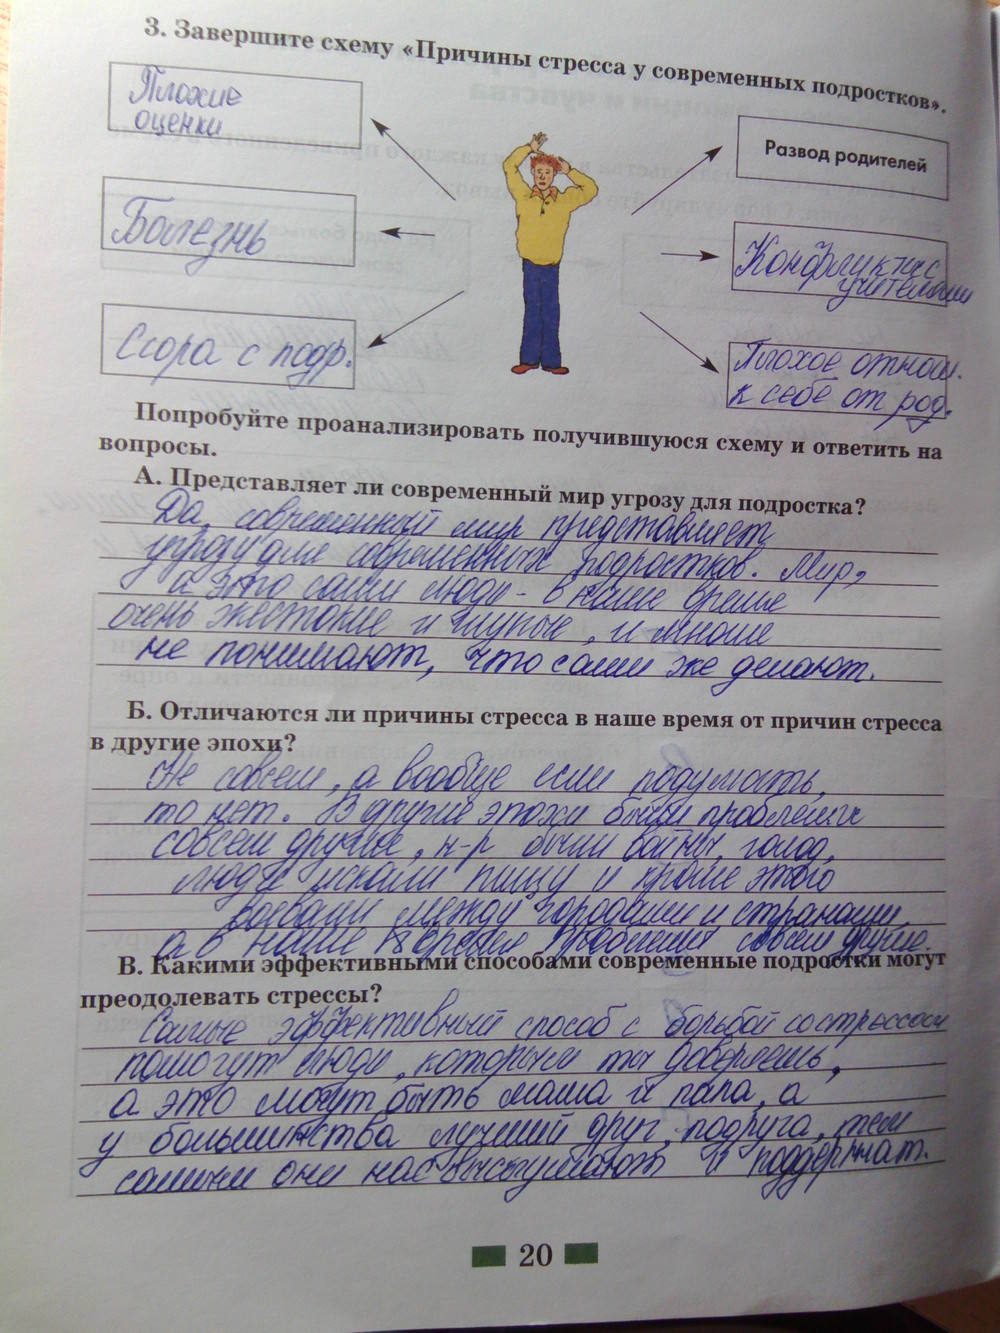 3. Завершите схему «Причины стресса у современных подростков».
Плохие
оценки
Развод родителей
Болезнь
Конфликт с
учителями
Ссора с подр.
Плохое отнош.
к себе от род.
Попробуйте проанализировать получившуюся схему и ответить на
вопросы.
А. Представляет ли современный мир угрозу для подростка?
Да, современный мир представляет
угрозу для современных подростков. Мир,
а это сами люди - в наше время
очень жестокие и глупые, и многие
не понимают, что сами же делают.
Б. Отличаются ли причины стресса в наше время от причин стресса
в другие эпохи?
Не совсем, а вообще если подумать,
то нет. В другие эпохи были проблемы
совсем другие, н-р были войны, голод,
люди искали пищу и кроме этого
воевали между городами и странами,
а в наше время проблемы совсем другие.
В. Какими эффективными способами современные подростки могут
преодолевать стрессы?
Самые эффективный способ с борьбой со стрессом
помогут люди, которым ты доверяешь,
а это могут быть мама и папа, а
у большинства лучший друг, подруга, тем
самым они нас выслушают и поддержат.
20